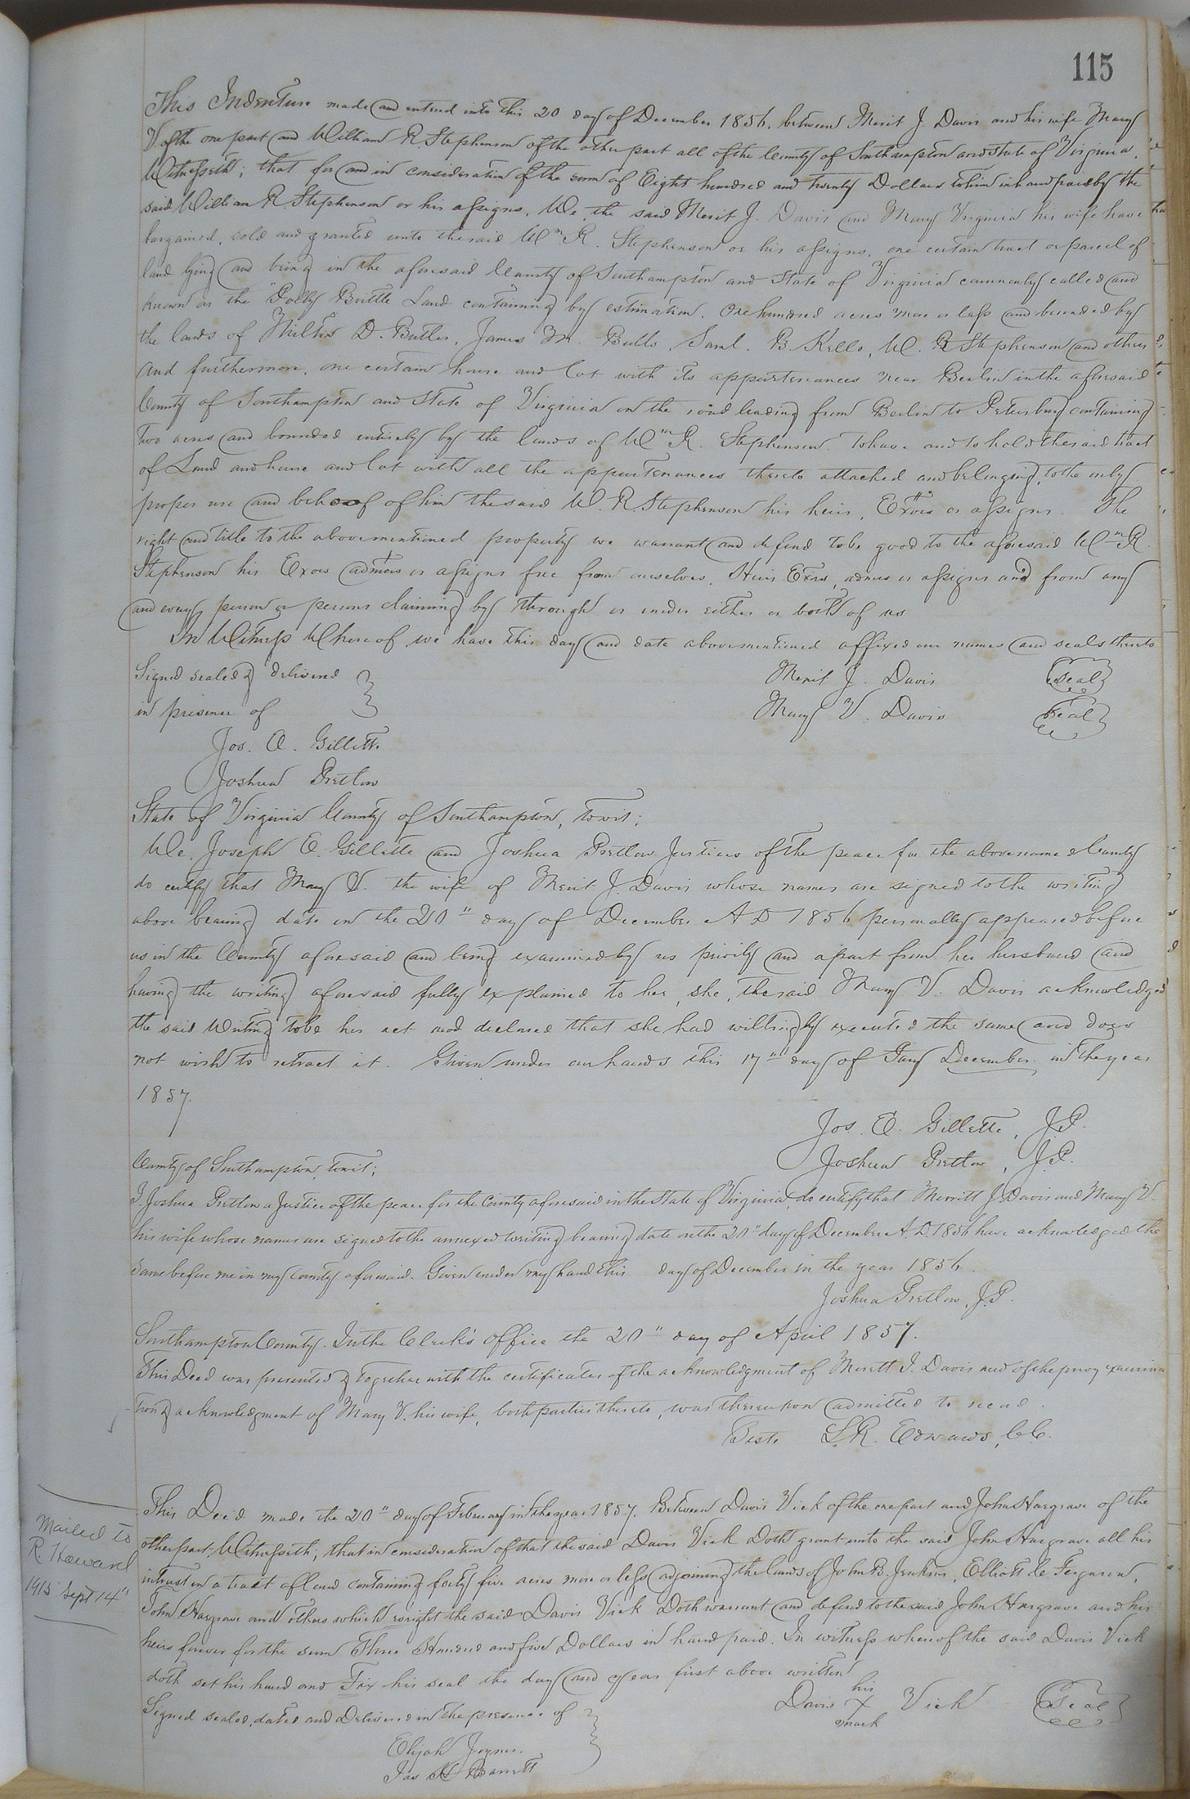 115
This Indenture made and entered into this 20 day of December 1856, between Merit J. Davis and his wife Mary
V. of the one part and William R Stephenson of the other part all of the County of Southampton and state of Virginia.
Witnesseth; that for and in consideration of the sum of Eight hundred and twenty Dollars to him in hand paid by the
said William R Stephenson or his assigns. We, the said Merit J. Davis and Mary Virginia his wife have
bargained, sold and granted unto the said Wm R. Stephenson or his assigns, one certain tract or parcel of
land lying and being in the aforesaid County of Southampton and State of Virginia commonly called and
known as the Polly Land containing by estimation, One hundred acres more or less and bounded by
the lands of D. Butler, James M. Butts, Saml. B. Kello, W. R Stephenson and others
and furthermore, one certain house and lot with its appurtenances near Berlin in the aforesaid
County of Southampton and State of Virginia on the road leading from Berlin to Petersburg containing
two acres and bounded entirely by the lands of Wm R. Stephenson. To have and to hold the said tract
of Land and house and lot with all the appurtenances thereto attached and belonging, to the only
proper use and behoof of him the said W. R. Stephenson his heirs, Extors or assigns. The
right and title to the above mentioned property we warrant and defend to be good to the aforesaid Wm R.
Stephenson his Exors admtors or assigns free from ourselves, Heirs Exrs, admrs or assigns and from any
and every person or persons claiming by through or under either or both of us
In Witness Whereof we have this day and date above mentioned affixed our names and seals thereto
Signed sealed & delivered } Merit J. Davis Seal
in presence of } Mary V. Davis Seal
Jos. E. Gillette
Joshua Pretlow
State of Virginia County of Southampton, towit;
We, Joseph E. Gillette and Joshua Pretlow Justices of the peace for the above named County
do certify that Mary V. the wife of Merit J. Davis whose names are signed to the writing
above bearing date on the 20" day of December A D 1856 personally appeared before
us in the County aforesaid and being examined by us privily and apart from her husband and
having the writing aforesaid fully explained to her, she, the said Mary V. Davis acknowledged
the said Writing to be her act and declared that she had willingly executed the same and does
not wish to retract it. Given under our hands this 17th day of Jany December in the year
1857.
Jos. E. Gillette, J.P.
Joshua Pretlow, J.P.
County of Southampton, towit;
I Joshua Pretlow a Justice of the peace for the County aforesaid in the State of Virginia, do certify that Merritt J. Davis and Mary V.
his wife whose names are signed to the annexed writing bearing date on the 20" day of December A.D. 1856 have acknowledged the
same before me in my county aforesaid. Given under my hand this day of December in the year 1856.
Joshua Pretlow, J.P.
Southampton County. In the Clerk's office the 20" day of April 1857.
This Deed was presented & together with the certificates of the acknowledgment of Meritt J. Davis and of the privy examina
tion & acknowledgment of Mary V. his wife, both parties thereto, was thereupon admitted to record.
Teste L. R. Edwards, CC.
This Deed made the 20" day of February in the year 1857. Between Davis Vick of the one part and John Hargrave of the
other part; Witnesseth; that in consideration of that the said Davis Vick Doth grant unto the said John Hargrave all his
interest in a tract of land containing forty five acres more or less adjoining the lands of John B. Jenkins, Elliott L. Ferguson,
John Hargrave and others which right the said Davis Vick Doth warrant and defend to the said John Hargrave and his
heirs forever for the sum Three Hundred and five Dollars in hand paid. In witness whereof the said Davis Vick
doth set his hand and Fix his seal the day and year first above written
Signed sealed, dated and Delivered in the presence of } Davis his X mark Vick Seal
Elijah Joyner
Jas H Barrett
Mailed to
R Howard
1915 Sept 14"